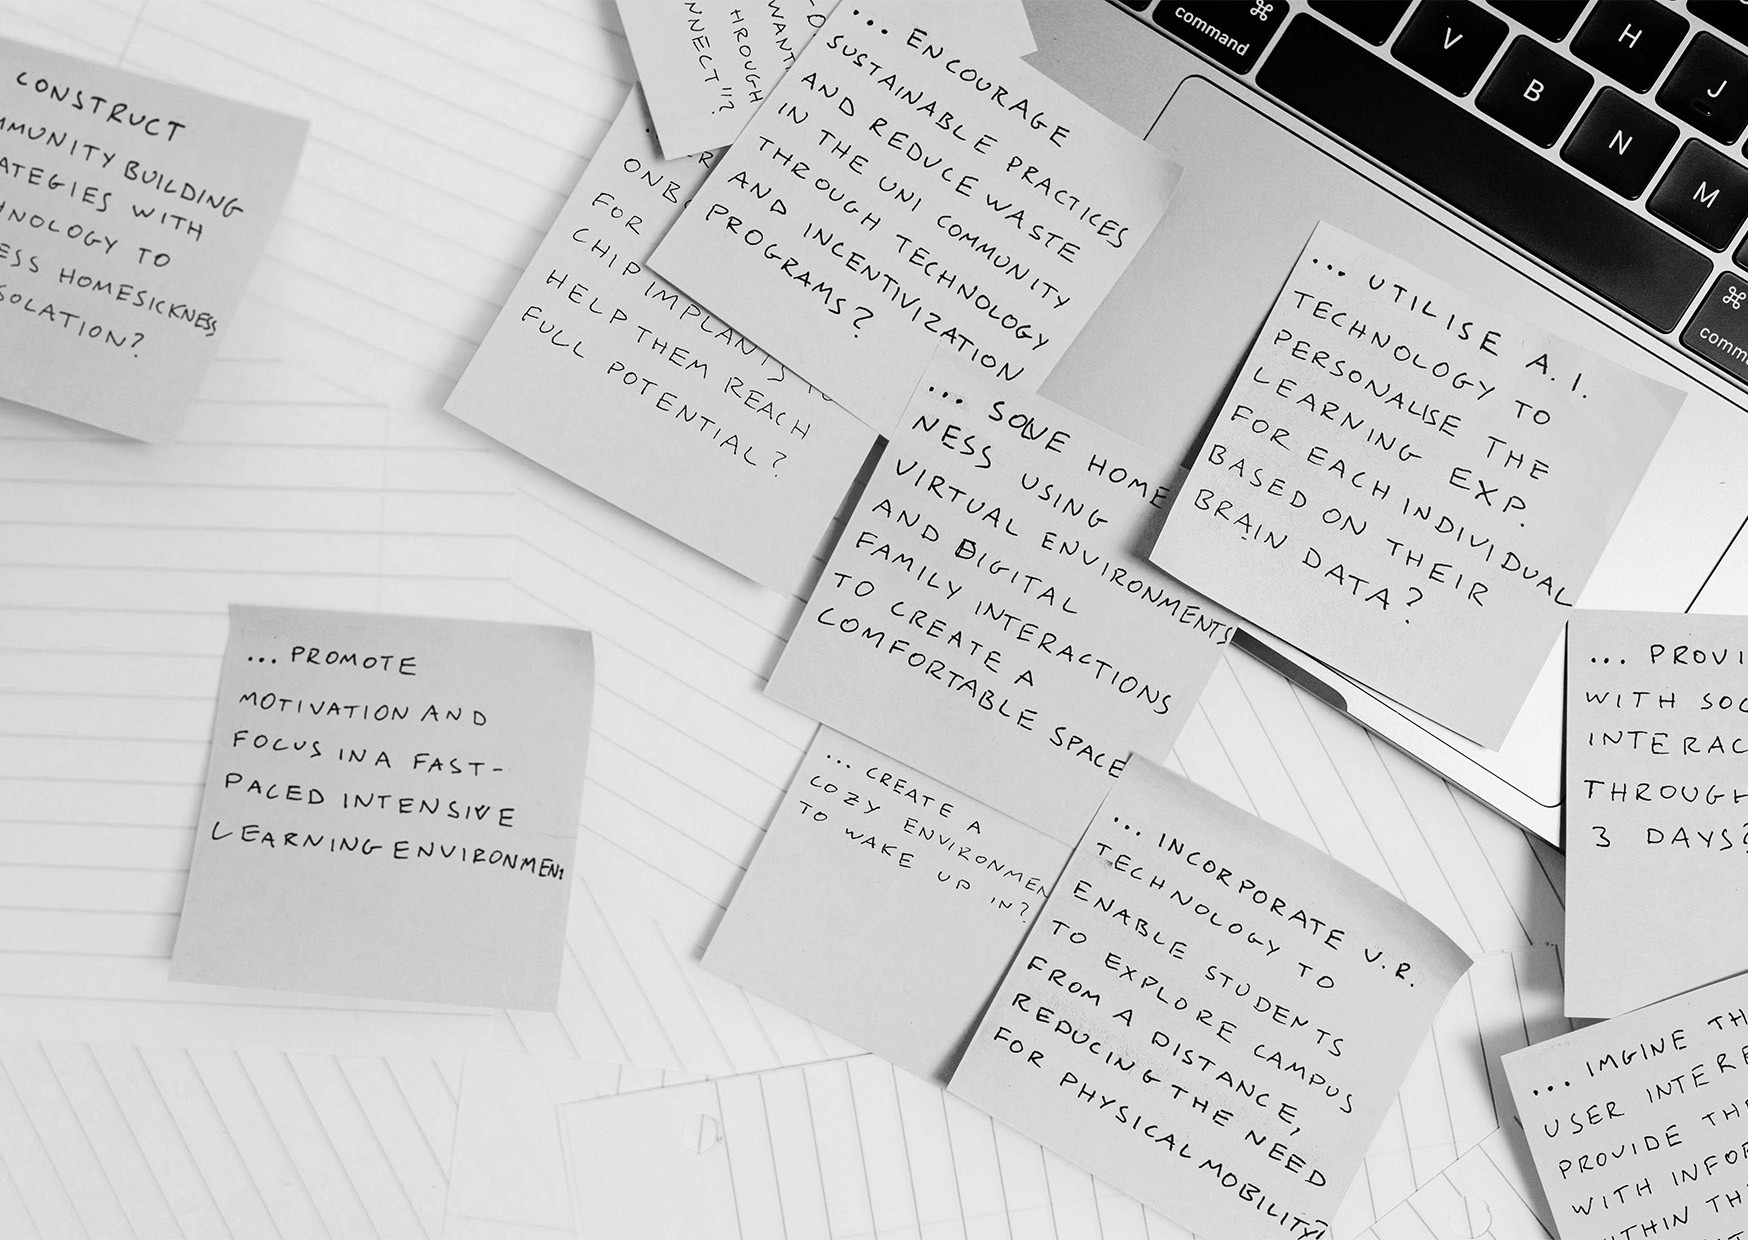 CONSTRUCT
BUILDING
WITH
TO
HOMESICKNESS
... PROMOTE
MOTIVATION AND
FOCUS IN A FAST-
PACED INTENSIVE
LEARNING ENVIRONMENT
THROUGH
FOR
CHIP IMPLANTS TO
HELP THEM REACH
FULL POTENTIAL?
... ENCOURAGE
SUSTAINABLE PRACTICES
AND REDUCE WASTE
IN THE UNI COMMUNITY
THROUGH TECHNOLOGY
AND INCENTIVIZATION
PROGRAMS?
... SOLVE HOME
NESS USING
VIRTUAL ENVIRONMENTS
AND DIGITAL
FAMILY INTERACTIONS
TO CREATE A
COMFORTABLE SPACE
... CREATE A
COZY ENVIRONMEN
TO WAKE UP
IN?
... INCORPORATE V.R.
TECHNOLOGY TO
ENABLE STUDENTS
TO EXPLORE CAMPUS
FROM A DISTANCE,
REDUCING THE NEED
FOR PHYSICAL MOBILITY?
... UTILISE A.I.
TECHNOLOGY TO
PERSONALISE THE
LEARNING EXP.
FOR EACH INDIVIDUAL
BASED ON THEIR
BRAIN DATA?
... PROVI
WITH SOC
INTERAC
THROUGH
3 DAYS?
... IMGINE TH
USER INTER
PROVIDE THE
WITH INFOR
⌘
command
V
B
N
M
H
J
⌘
comm